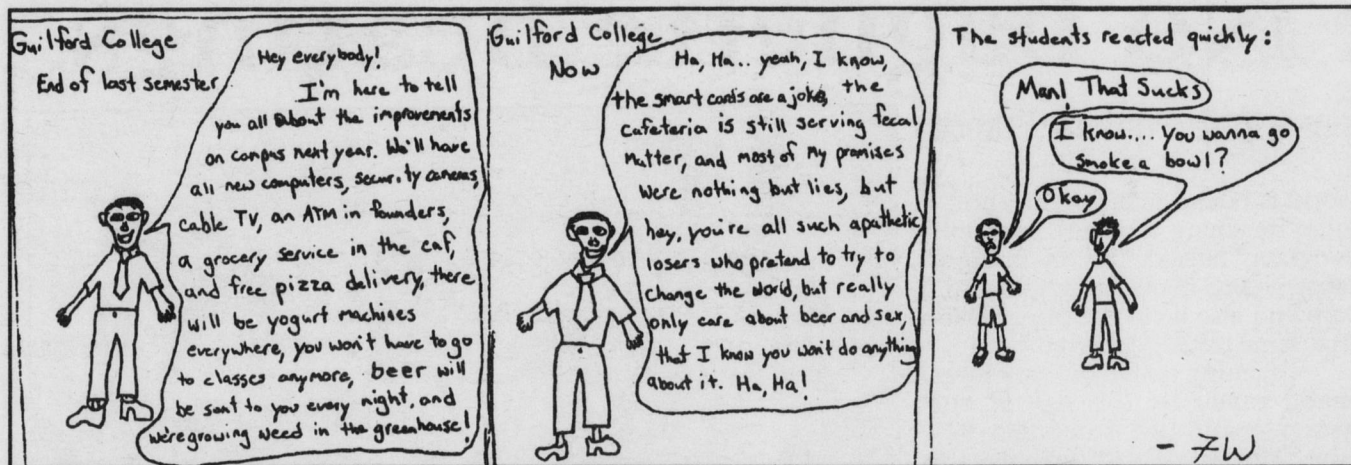 Guilford College
End of last semester
Hey everybody!
I'm here to tell
you all about the improvements
on campus next year. We'll have
all new computers, security cameras,
cable TV, an ATM in founders,
a grocery service in the caf,
and free pizza delivery, there
will be yogurt machines
everywhere, you won't have to go
to classes anymore, beer will
be sent to you every night, and
we're growing weed in the greenhouse!
Guilford College
Now
Ha, Ha.. yeah, I know,
the smart cards are a joke, the
cafeteria is still serving fecal
matter, and most of my promises
were nothing but lies, but
hey, you're all such apathetic
losers who pretend to try to
change the world, but really
only care about beer and sex,
that I know you won't do anything
about it. Ha, Ha!
The students reacted quickly:
Man! That Sucks
I know.... you wanna go
smoke a bowl?
Okay
- 7W